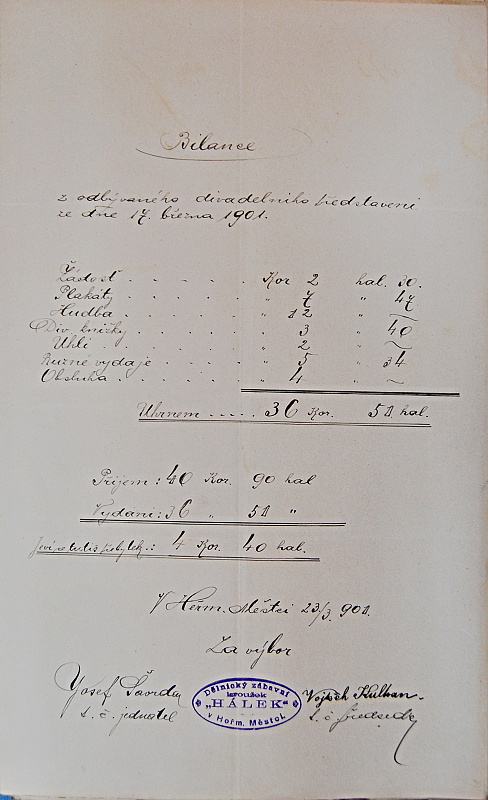 Bilance
z odbývaného divadelního představení
ze dne 17. března 1901.
Žádost . . . . . . Kor 2 hal. 30.
Plakáty . . . . . . " 7 " 47
Hudba . . . . . . " 12 " ~
Div. knížky . . . . . " 3 " 40
Uhlí . . . . . . " 2 " ~
Různé vydaje . . . . . " 5 " 34
Obsluha . . . . . . " 4 " ~
Úhrnem ..... 36 Kor. 51 hal.
Příjem : 40 Kor. 90 hal
Vydání : 36 " 51 "
4 Kor. 40 hal.
V Heřm. Městci 23/3. 901.
Za výbor
Josef
t. č. jednatel
Dělnický zábavní
kroužek
„HÁLEK"
v Heřm. Městci.
Vojtěch
t. č. předseda